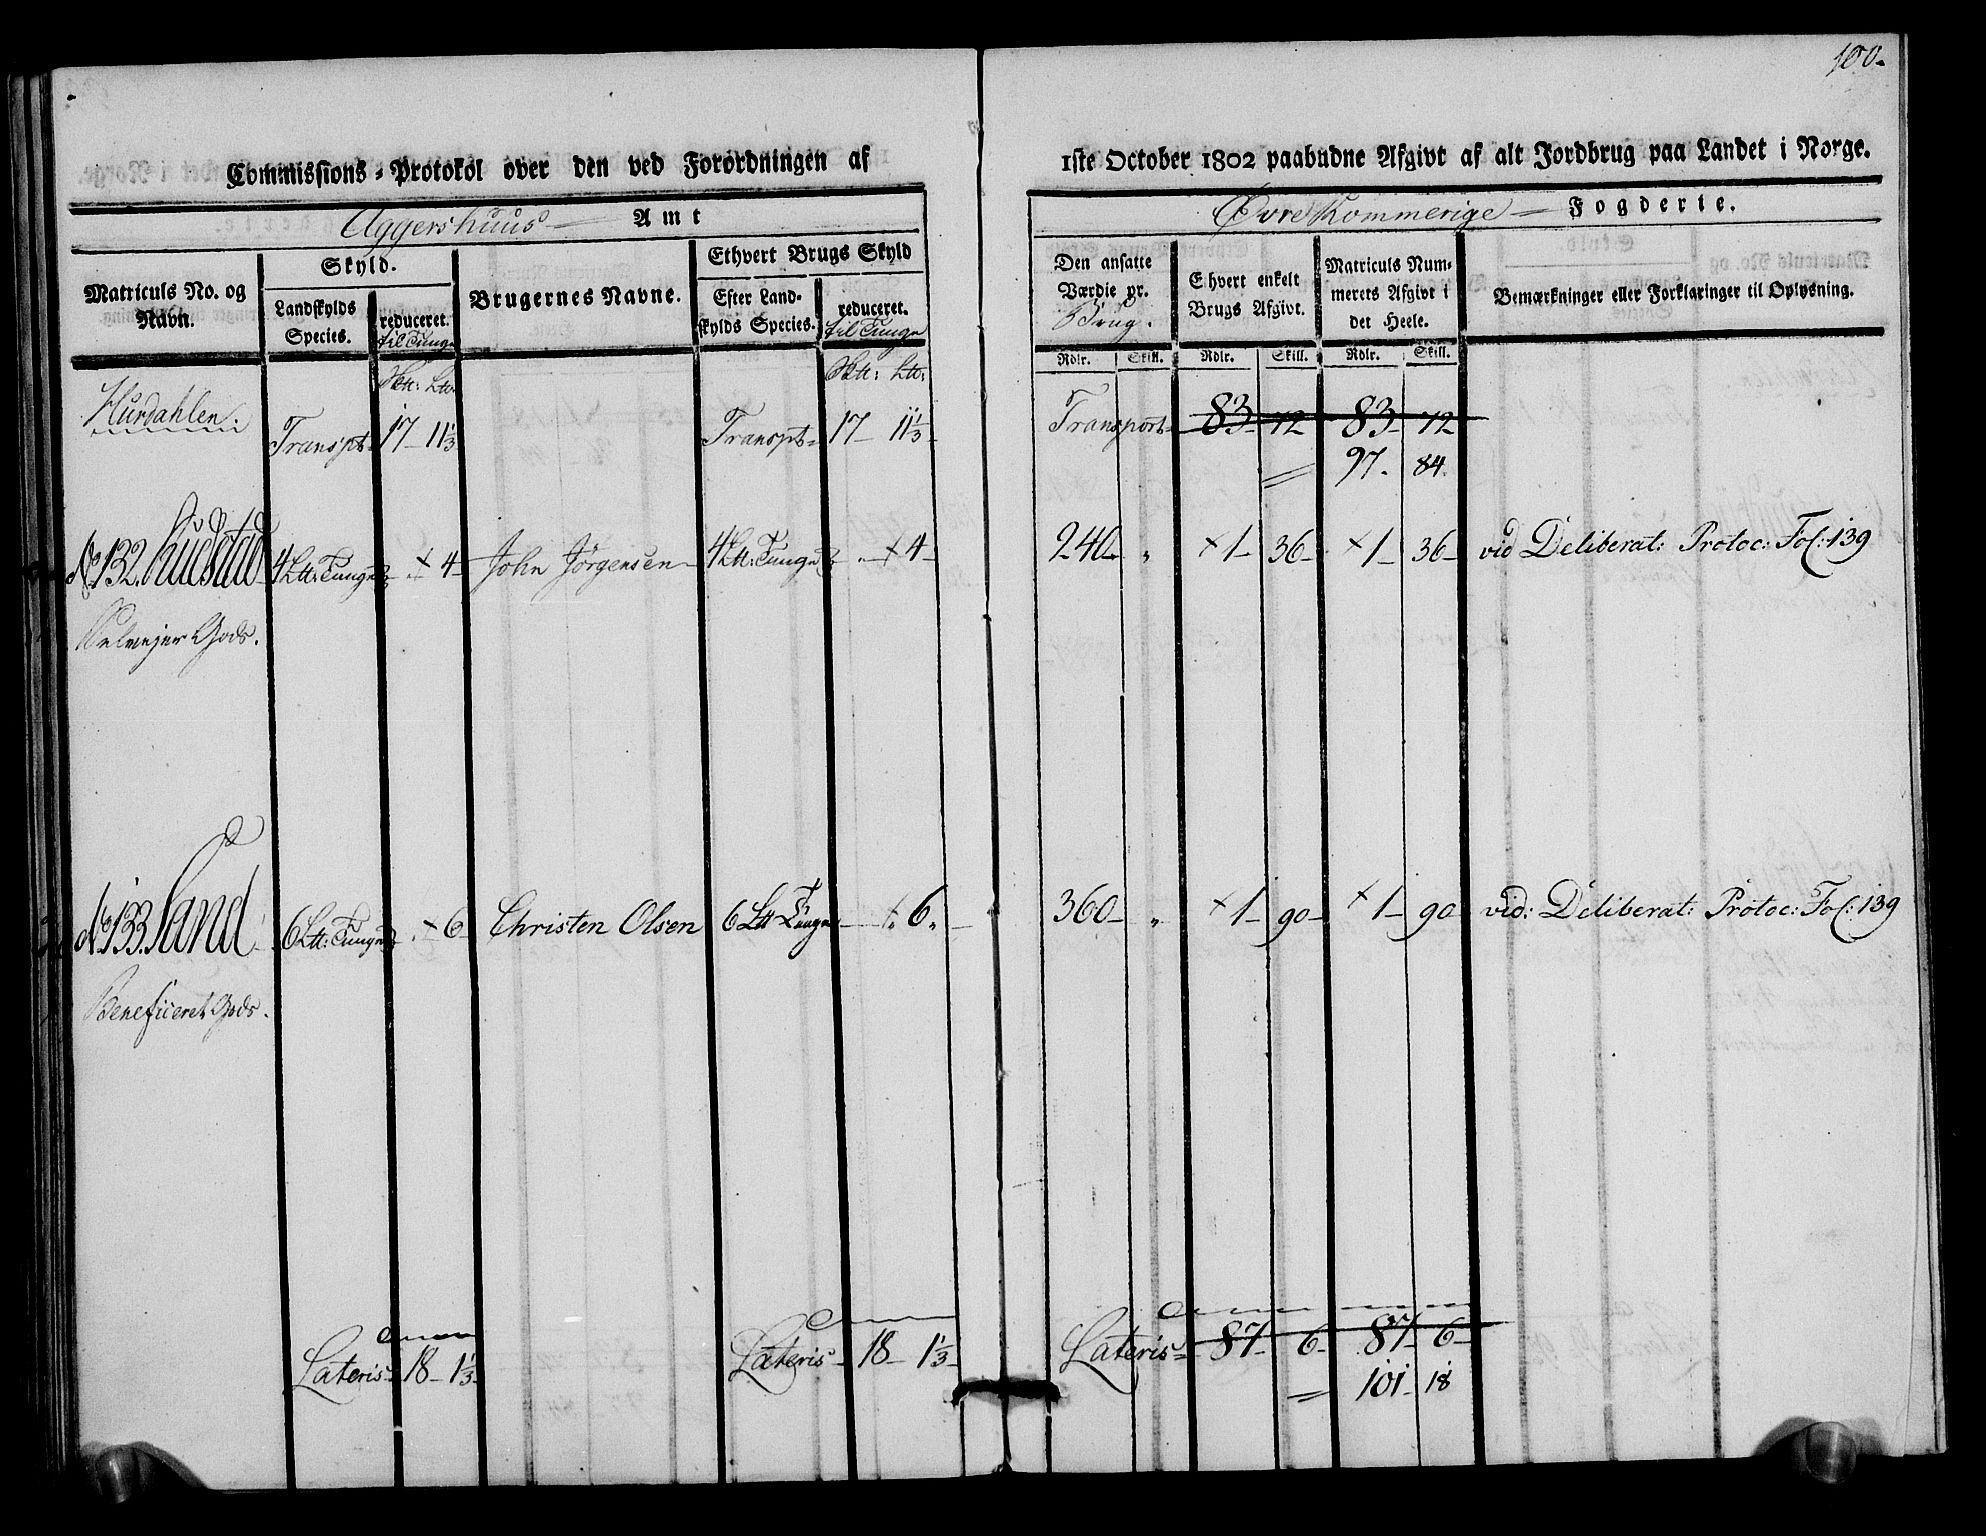 100.
Commissions-Protokol over den ved Forordningen af
1ste October 1802 paabudne Afgivt af alt Jordbrug paa Landet i Norge.
Aggershuus Amt
Øvre Rommerige Fogderie.
Matriculs No. og Navn.
Skyld.
Landskylds Species.
reduceret.
til Tunge
Brugernes Navne.
Ethvert Brugs Skyld
Efter Landskylds Species.
reduceret.
til Tunge
Den ansatte Værdie pr.
Brug.
Ehvert enkelt Brugs Afgivt.
Matriculs Nummerets Afgivt i det Heele.
Bemærkninger eller Forklaringer til Oplysning.
Rdlr. Skill. Rdlr. Skill. Rdlr. Skill.
Hurdahlen.
Transpt 17 - 11 1/3 Transpt 17 - 11 1/3 Transport 83 - 72 83 - 72
97. 84.
No 132. Rustad 4 Ltt: Tunge + 4 - John Jørgensen 4 Ltt: Tunge + 4 - 240 " + 1 - 36 - + 1 - 36 - vid Deliberat: Protoc: Fol: 139
Selvejer Gods.
No 133. Sand 6 Ltt: Tunge + 6 - Christen Olsen 6 Ltt Tunge + 6 " 360 - " + 1 - 90 - + 1 - 90 vid: Deliberat: Protoc: Fol: 139
Beneficeret Gods.
Lateris 18 - 1 1/3 Lateris 18 - 1 1/3 Lateris 87 - 6 - 87 - 6 -
101 - 18